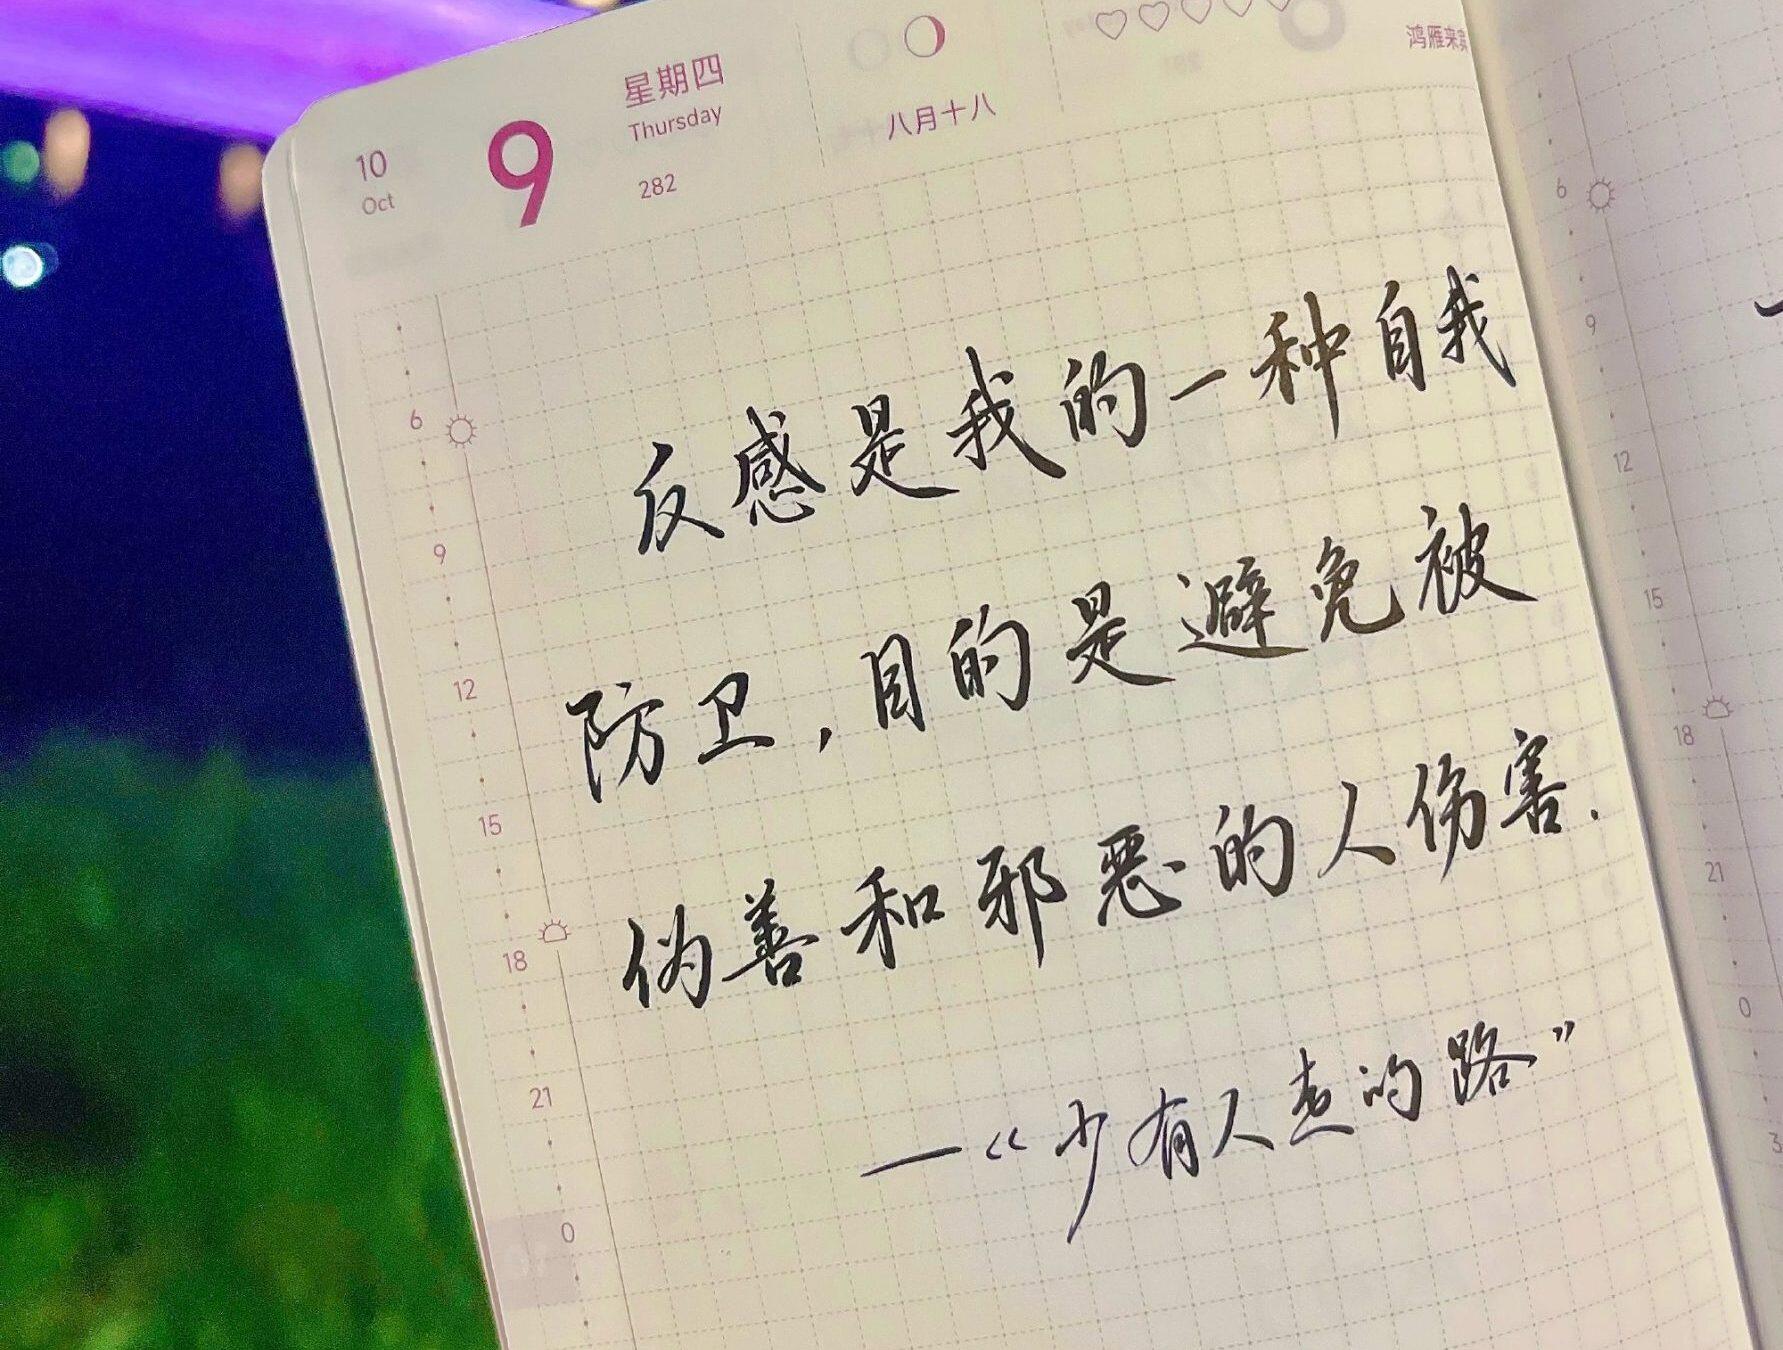 10
Oct
9
星期四
Thursday
282
八月十八
鸿雁来
反感是我的一种自我
防卫，目的是避免被
伪善和邪恶的人伤害.
—《少有人走的路”
6
9
12
15
18
21
0
6
9
12
15
18
21
0
3